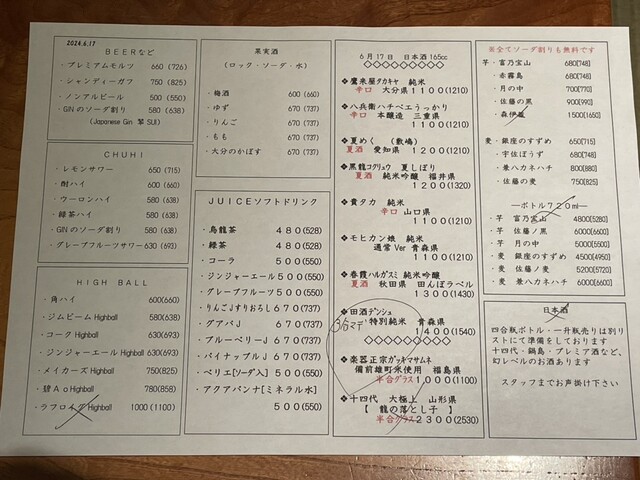 2024.6.17
BEERなど
・プレミアムモルツ 660 (726)
・シャンディーガフ 750 (825)
・ノンアルビール 500 (550)
・GINのソーダ割り 580 (638)
(Japanese Gin 翠 SUI)
CHUHI
・レモンサワー 650 (715)
・酎ハイ 600 (660)
・ウーロンハイ 580 (638)
・緑茶ハイ 580 (638)
・GINのソーダ割り 580 (638)
・グレープフルーツサワー 630 (693)
HIGH BALL
・角ハイ 600(660)
・ジムビーム Highball 580(638)
・コーク Highball 630(693)
・ジンジャーエール Highball 630(693)
・メイカーズ Highball 750(825)
・碧Ao Highball 780(858)
・ラフロイグ Highball 1000 (1100)
果実酒
(ロック・ソーダ・水)
・梅酒 600 (660)
・ゆず 670 (737)
・りんご 670 (737)
・もも 670 (737)
・大分のかぼす 670 (737)
JUICEソフトドリンク
・烏龍茶 480(528)
・緑茶 480(528)
・コーラ 500(550)
・ジンジャーエール 500(550)
・グレープフルーツ 500(550)
・りんごJすりおろし 670(737)
・グアバJ 670(737)
・ブルーベリーJ 670(737)
・パイナップルJ 670(737)
・ペリエ[ソーダ入] 500(550)
・アクアパンナ[ミネラル水]
500(550)
6月17日 日本酒 165cc
◇◇◇◇◇◇◇◇
❖鷹来屋タカキヤ 純米
辛口 大分県 1100(1210)
❖八兵衛ハチベエうっかり
辛口 本醸造 三重県
1100(1210)
❖夏めく (敷嶋)
夏酒 愛知県 1100(1210)
❖黒龍コクリュウ 夏しぼり
夏酒 純米吟醸 福井県
1200(1320)
❖貴タカ 純米
辛口 山口県
1100(1210)
❖モヒカン娘 純米
通常Ver 青森県
1100(1210)
❖春霞ハルガスミ 純米吟醸
夏酒 秋田県 田んぼラベル
1300(1430)
❖田酒デンシュ
特別純米 青森県
1400(1540)
◇◇◇◇◇◇◇◇
❖楽器正宗ガッキマサムネ
備前雄町米使用 福島県
半合グラス 1000(1100)
❖十四代 大極上 山形県
【 龍の落とし子 】
半合グラス 2300(2530)
※全てソーダ割りも無料です
芋・富乃宝山 680[748]
・赤霧島 680[748]
・月の中 700[770]
・佐藤の黒 900[990]
・森伊蔵 1500[1650]
麦・銀座のすずめ 650[715]
・宇佐ぼうず 680[748]
・兼八カネハチ 800[880]
・佐藤の麦 750[825]
―ボトル720ml―
・芋 富乃宝山 4800[5280]
・芋 佐藤ノ黒 6000[6600]
・芋 月の中 5000[5500]
・麦 銀座のすずめ 4500[4950]
・麦 佐藤ノ麦 5200[5720]
・麦 兼八カネハチ 6000[6600]
日本酒
四合瓶ボトル・一升瓶売りは別リ
ストにて準備をしております
十四代・鍋島・プレミア酒など、
幻レベルのお酒あります
スタッフまでお声掛け下さい